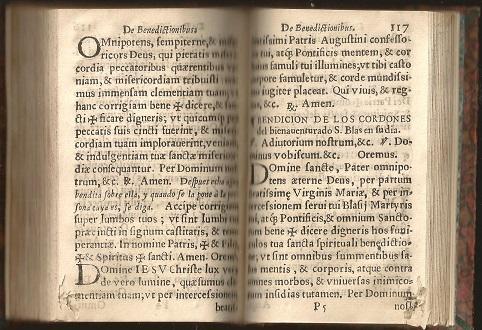 De Benedictionibus
OMnipotens, sempiterne, & mise
ricors Deus, qui pietatis mise
cordia peccatoribus quærentibus ve
niam, & misericordiam tribuisti
mus immensam clementiam tuam, vt
hanc corrigiam bene ✠ dicere, & san
cti ✠ ficare digneris; vt quicumq; pro
peccatis suis cincti fuerint, & mise
cordiam tuam implorauerint, veniam,
& indulgentiam tuæ sanctæ misericor
diæ consequantur. Per Dominum no
trum, &c. ℟. Amen. Despues echa agua
bendita sobre ella, y quando se la pone à la per
sona cuya es, se diga. Accipe corrigiam
super lumbos tuos; vt sint lumbi tui
præcincti in signum castitatis, & tem
perantiæ. In nomine Patris, ✠ & Filij,
✠ & Spiritus ✠ sancti. Amen. Oremus
DOmine IESV Christe lux vera
de vero lumine, quæsumus cle
mentiam tuam; vt per intercessionem
beatis
De Benedictionibus. 117
Patris Augustini confesso
tui, atq; Pontificis mentem, & cor
famuli tui illumines; vt tibi casto
corpore famuletur, & corde mundissi
iugiter placeat. Qui viuis, & reg
nas, &c. ℟. Amen.
BENDICION DE LOS CORDONES
del bienauenturado S. Blas en su dia.
℣. Adiutorium nostrum, &c. ℣. Do
minus vobiscum. &c. Oremus.
DOmine sancte, Pater omnipo
tens æterne Deus, per partum
Virginis Mariæ, & per in
tercessionem serui tui Blasij Martyris
tui, atq; Pontificis, & omnium Sancto
rum bene ✠ dicere digneris hos funi
culos tua sancta spirituali benedictio
ne; vt sint omnibus sumentibus sa
lus mentis, & corporis, atque contra
omnes morbos, & vniuersas inimico
rum insidias tutamen. Per Dominum
P 5 nost